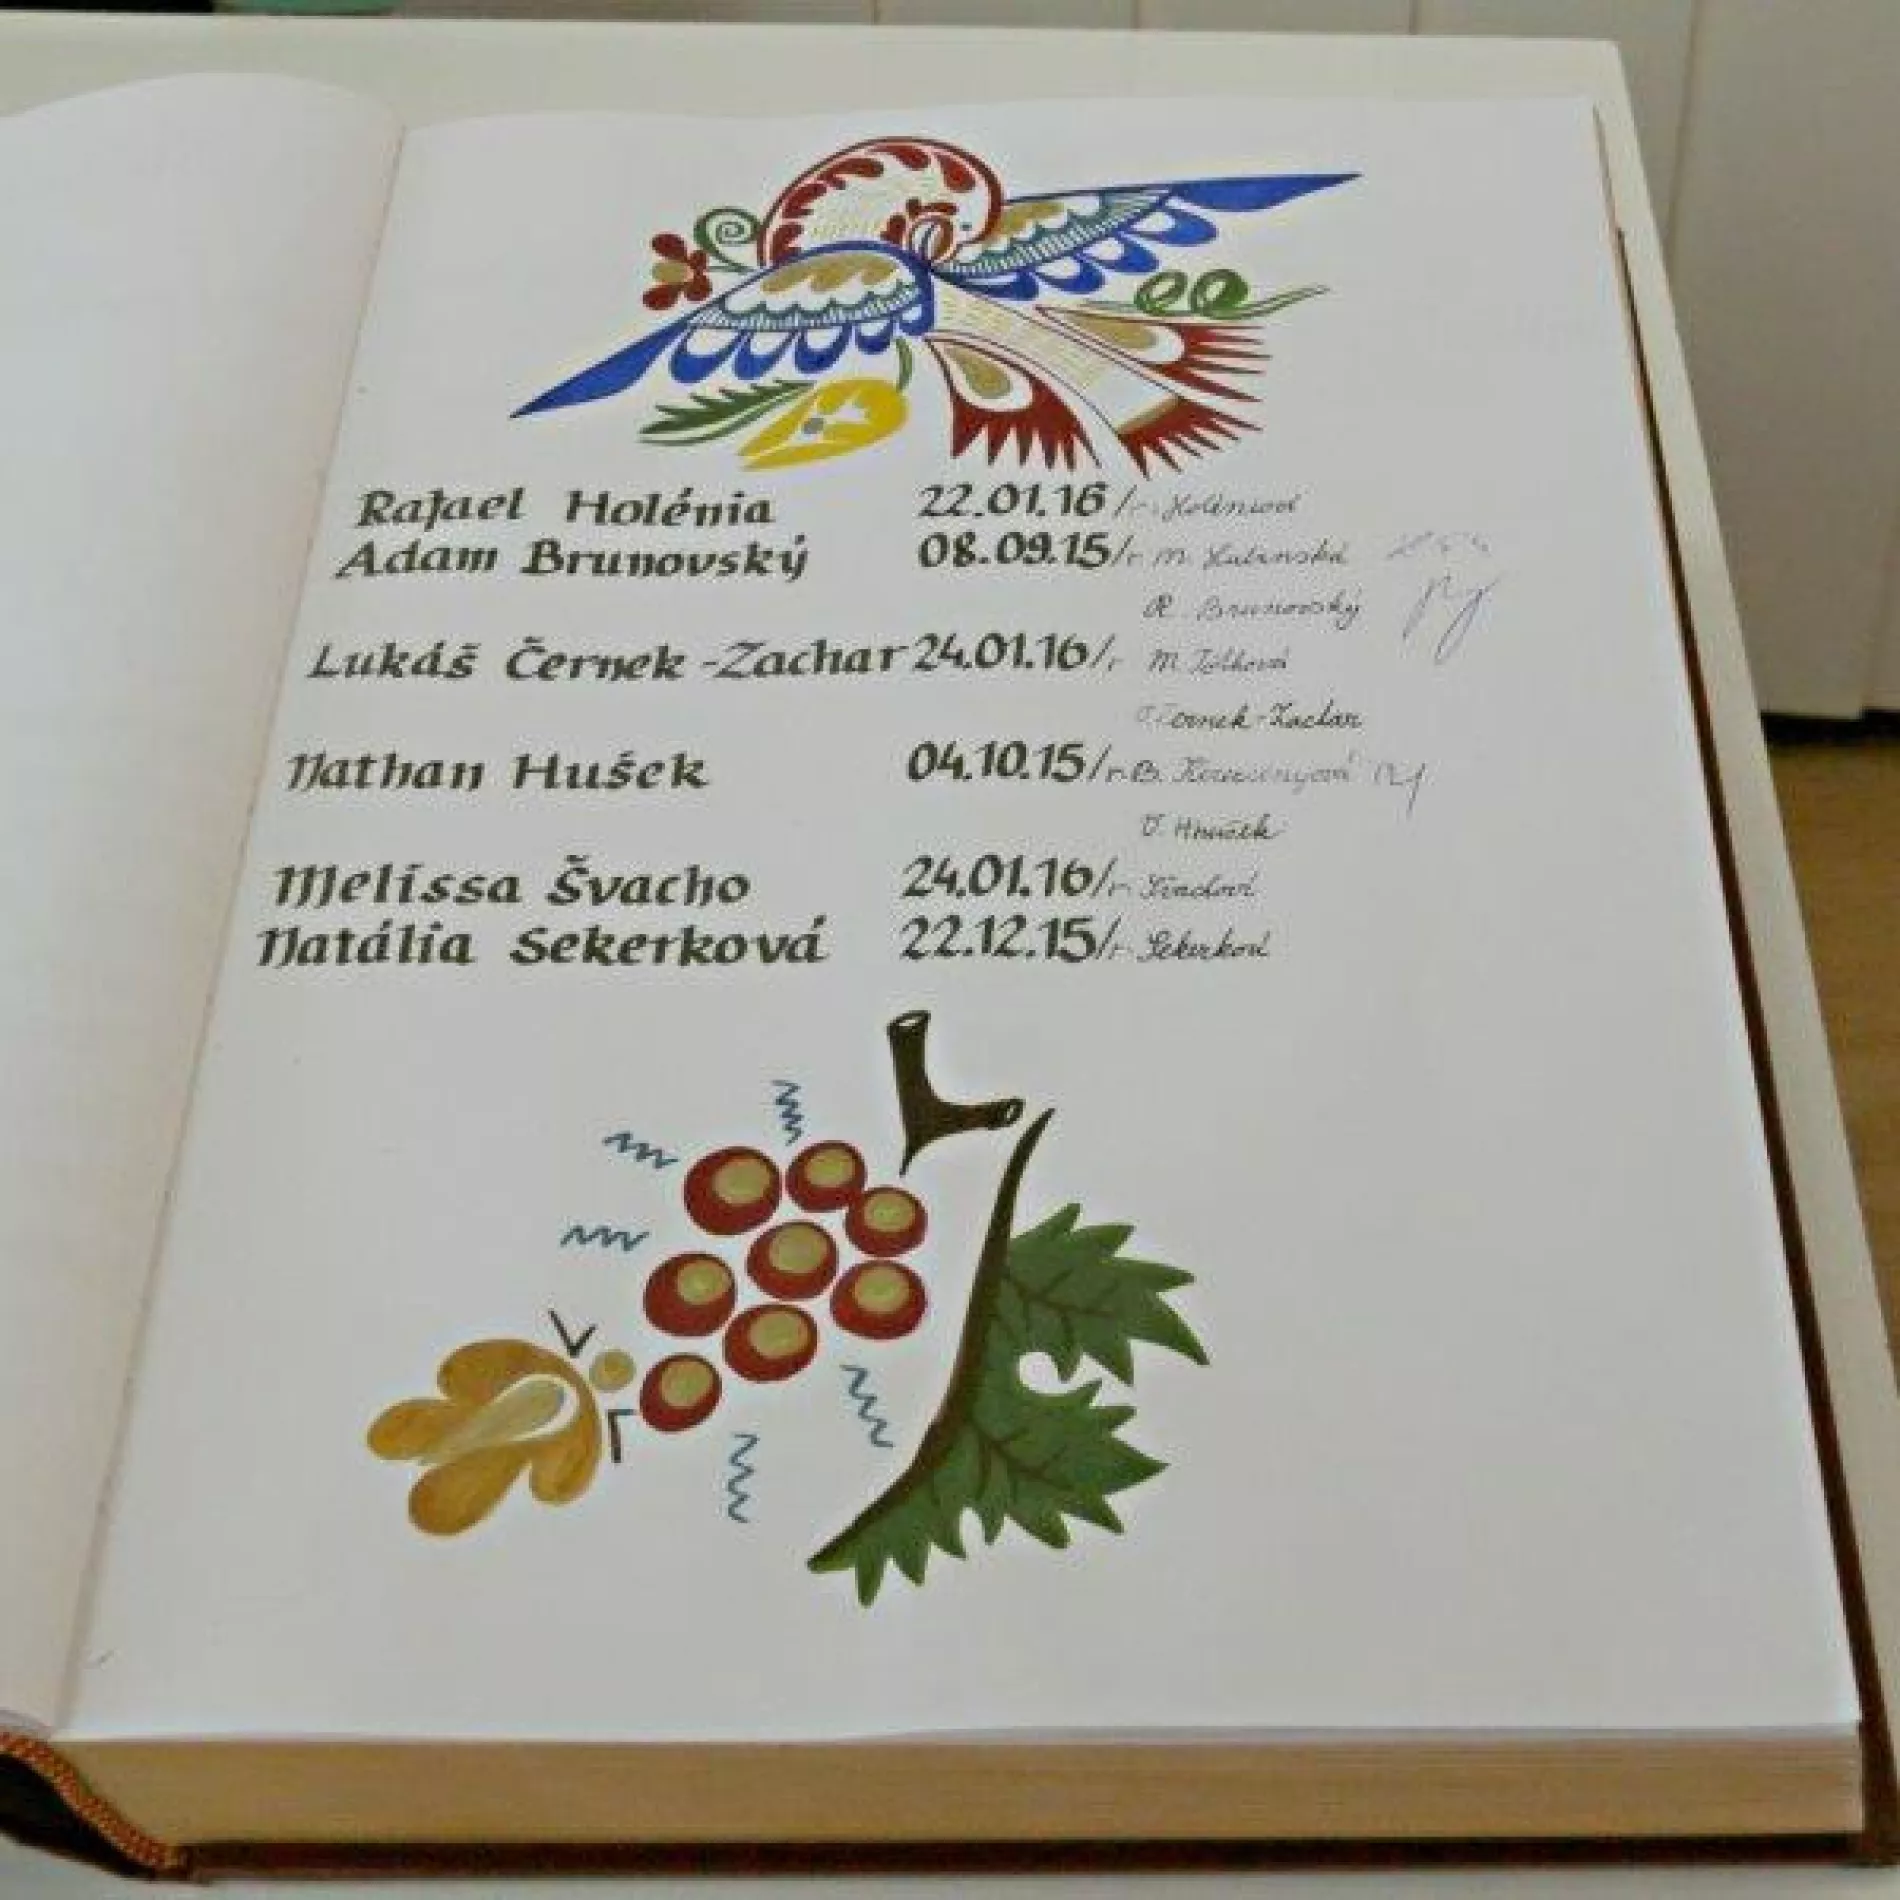 Rafael Holénia 22.01.16/r. Holéniovi
Adam Brunovský 08.09.15/r. M.
R. Brunovský
Lukáš Černek-Zachar 24.01.16/r. M.
Černek-Zachar
Nathan Hušek 04.10.15/r. B.
Melissa Švacho 24.01.16/r. Švachoví
Natália Sekerková 22.12.15/r. Sekerkoví